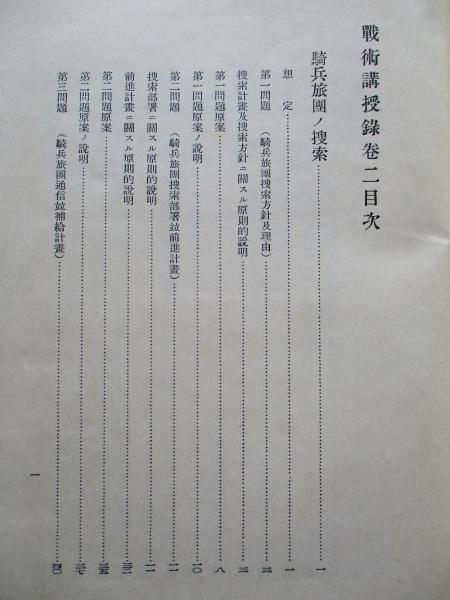 戰術講授錄卷二目次
騎兵旅團ノ搜索……一
想定……一
第一問題（騎兵旅團搜索方針及理由）……三
搜索計畫及搜索方針ニ關スル原則的說明……三
第一問題原案……八
第一問題原案ノ說明……一〇
第二問題（騎兵旅團搜索部署竝前進計畫）……二一
搜索部署ニ關スル原則的說明……二一
前進計畫ニ關スル原則的說明……三二
第二問題原案……三五
第二問題原案ノ說明……三七
第三問題（騎兵旅團通信竝補給計畫）……四〇
一